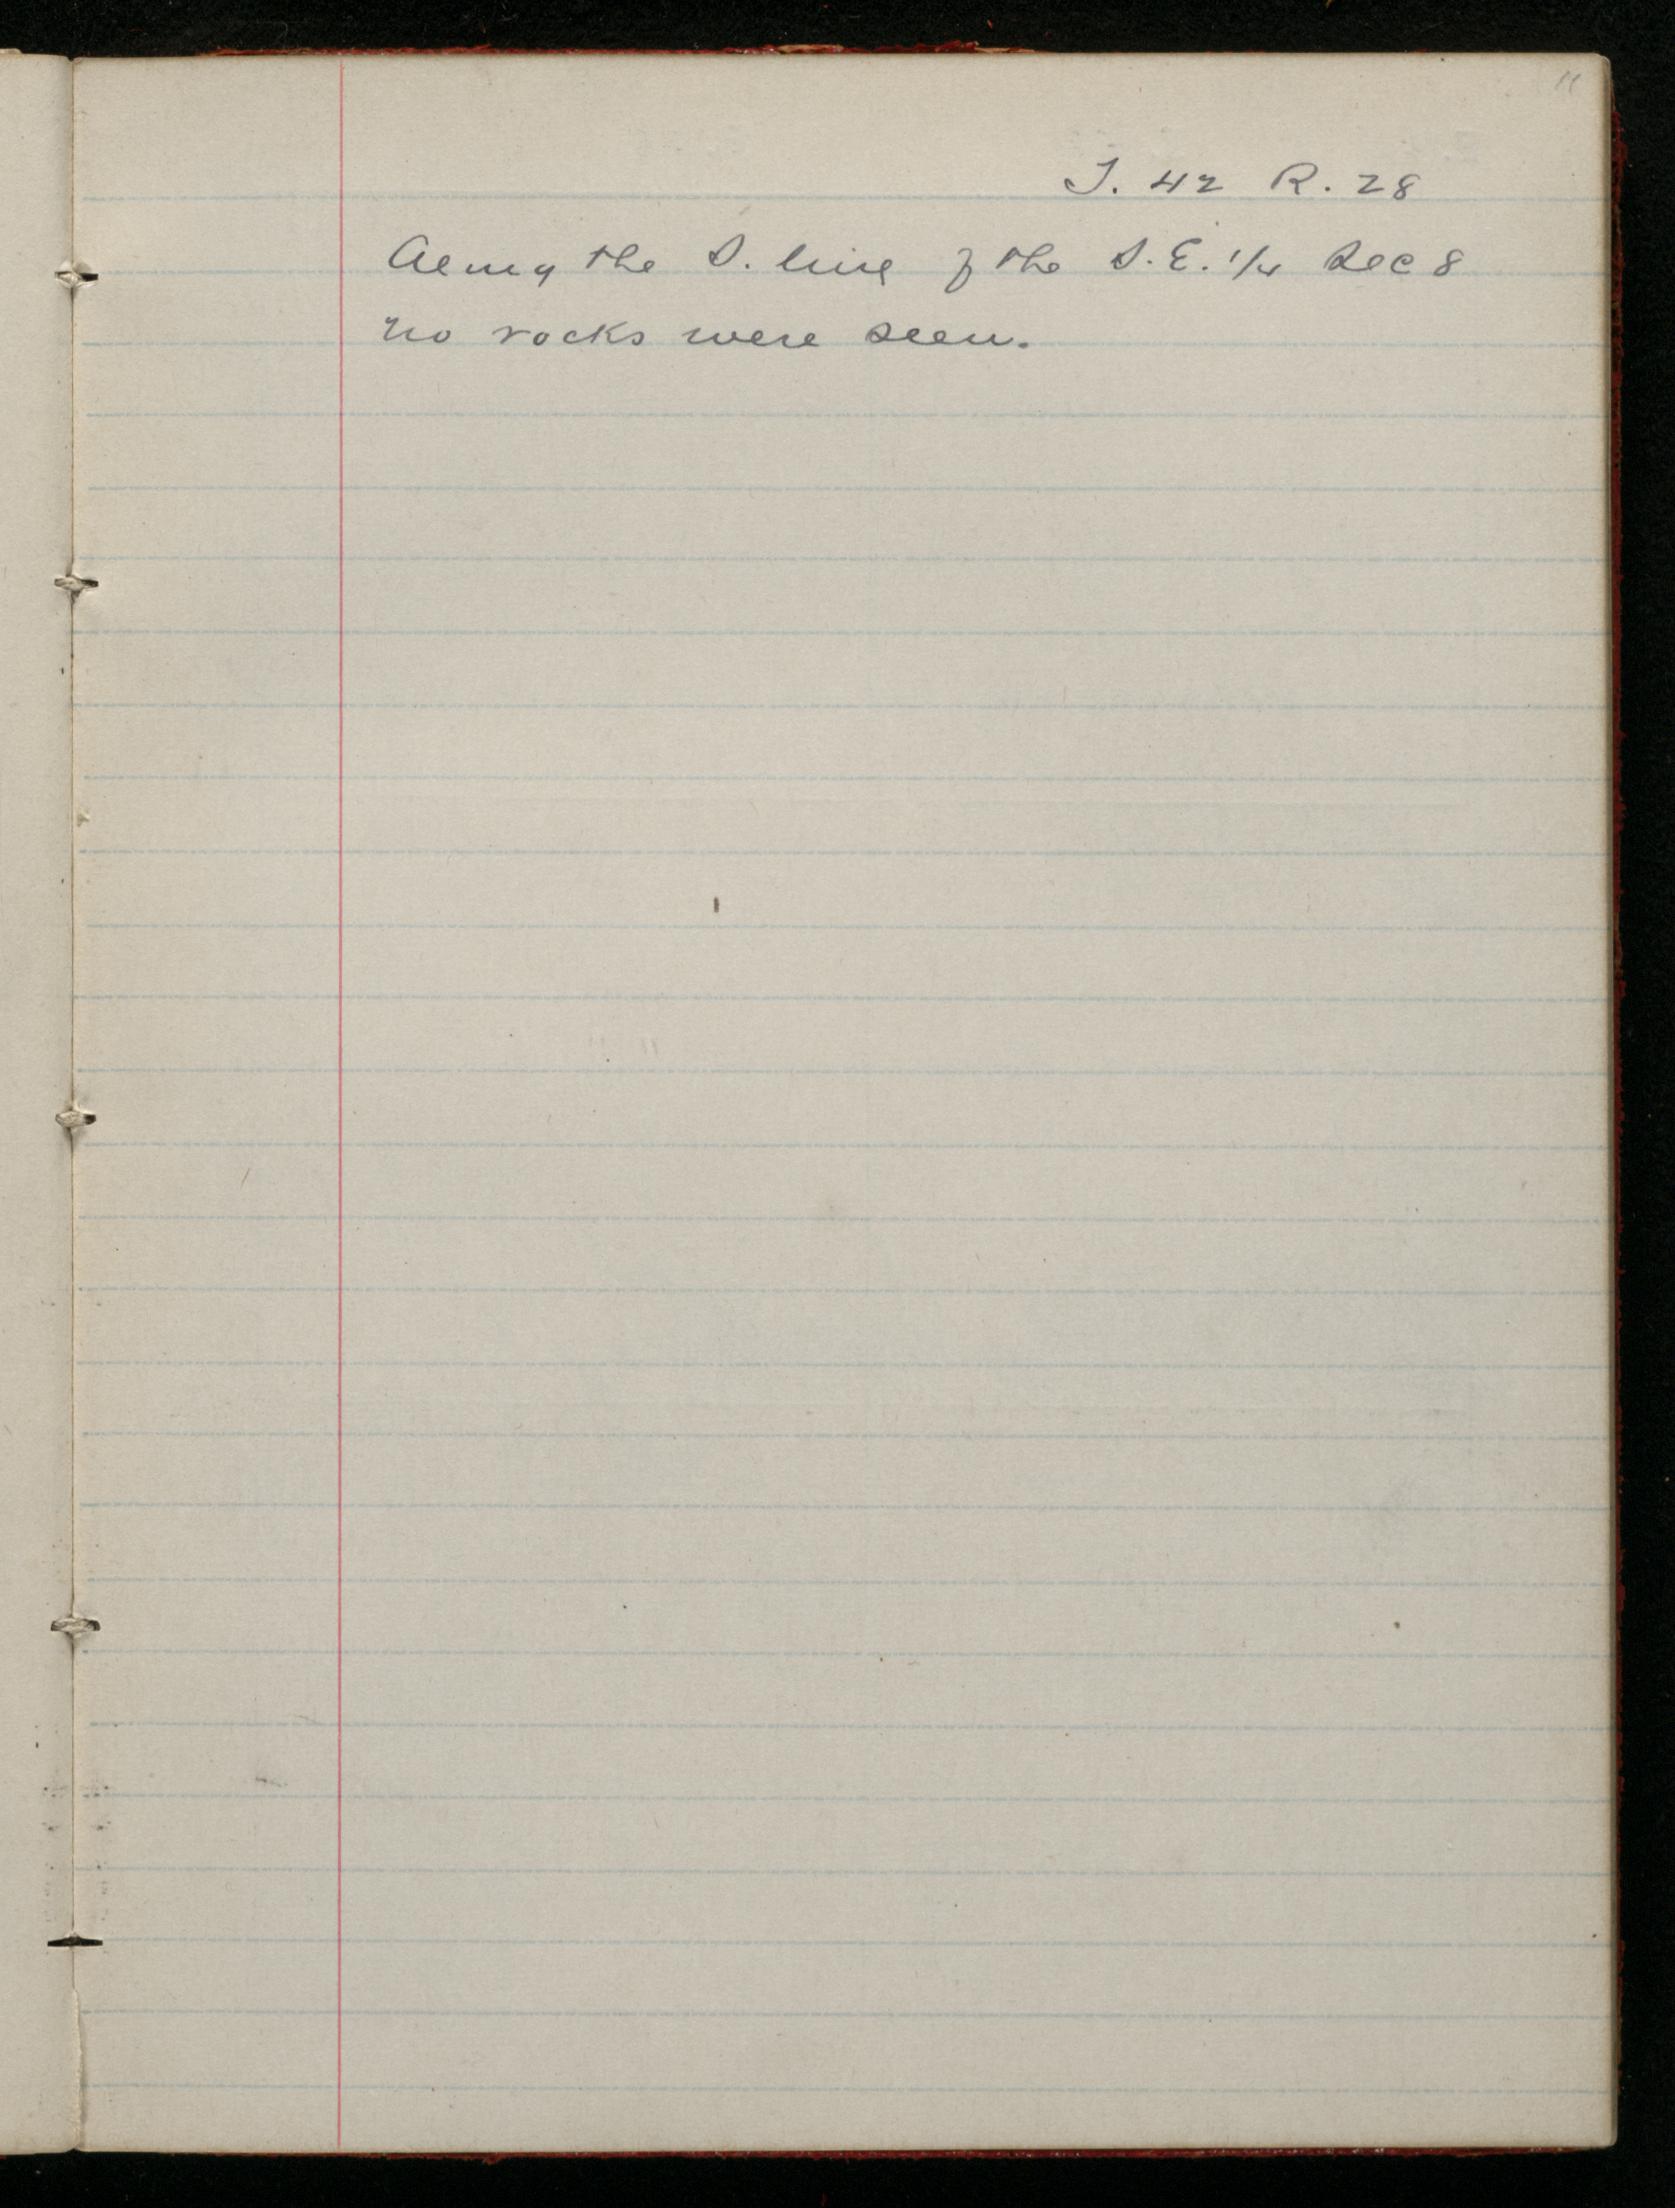 11
T. 42 R. 28
Along the S. line of the S.E. 1/4 Sec 8
no rocks were seen.